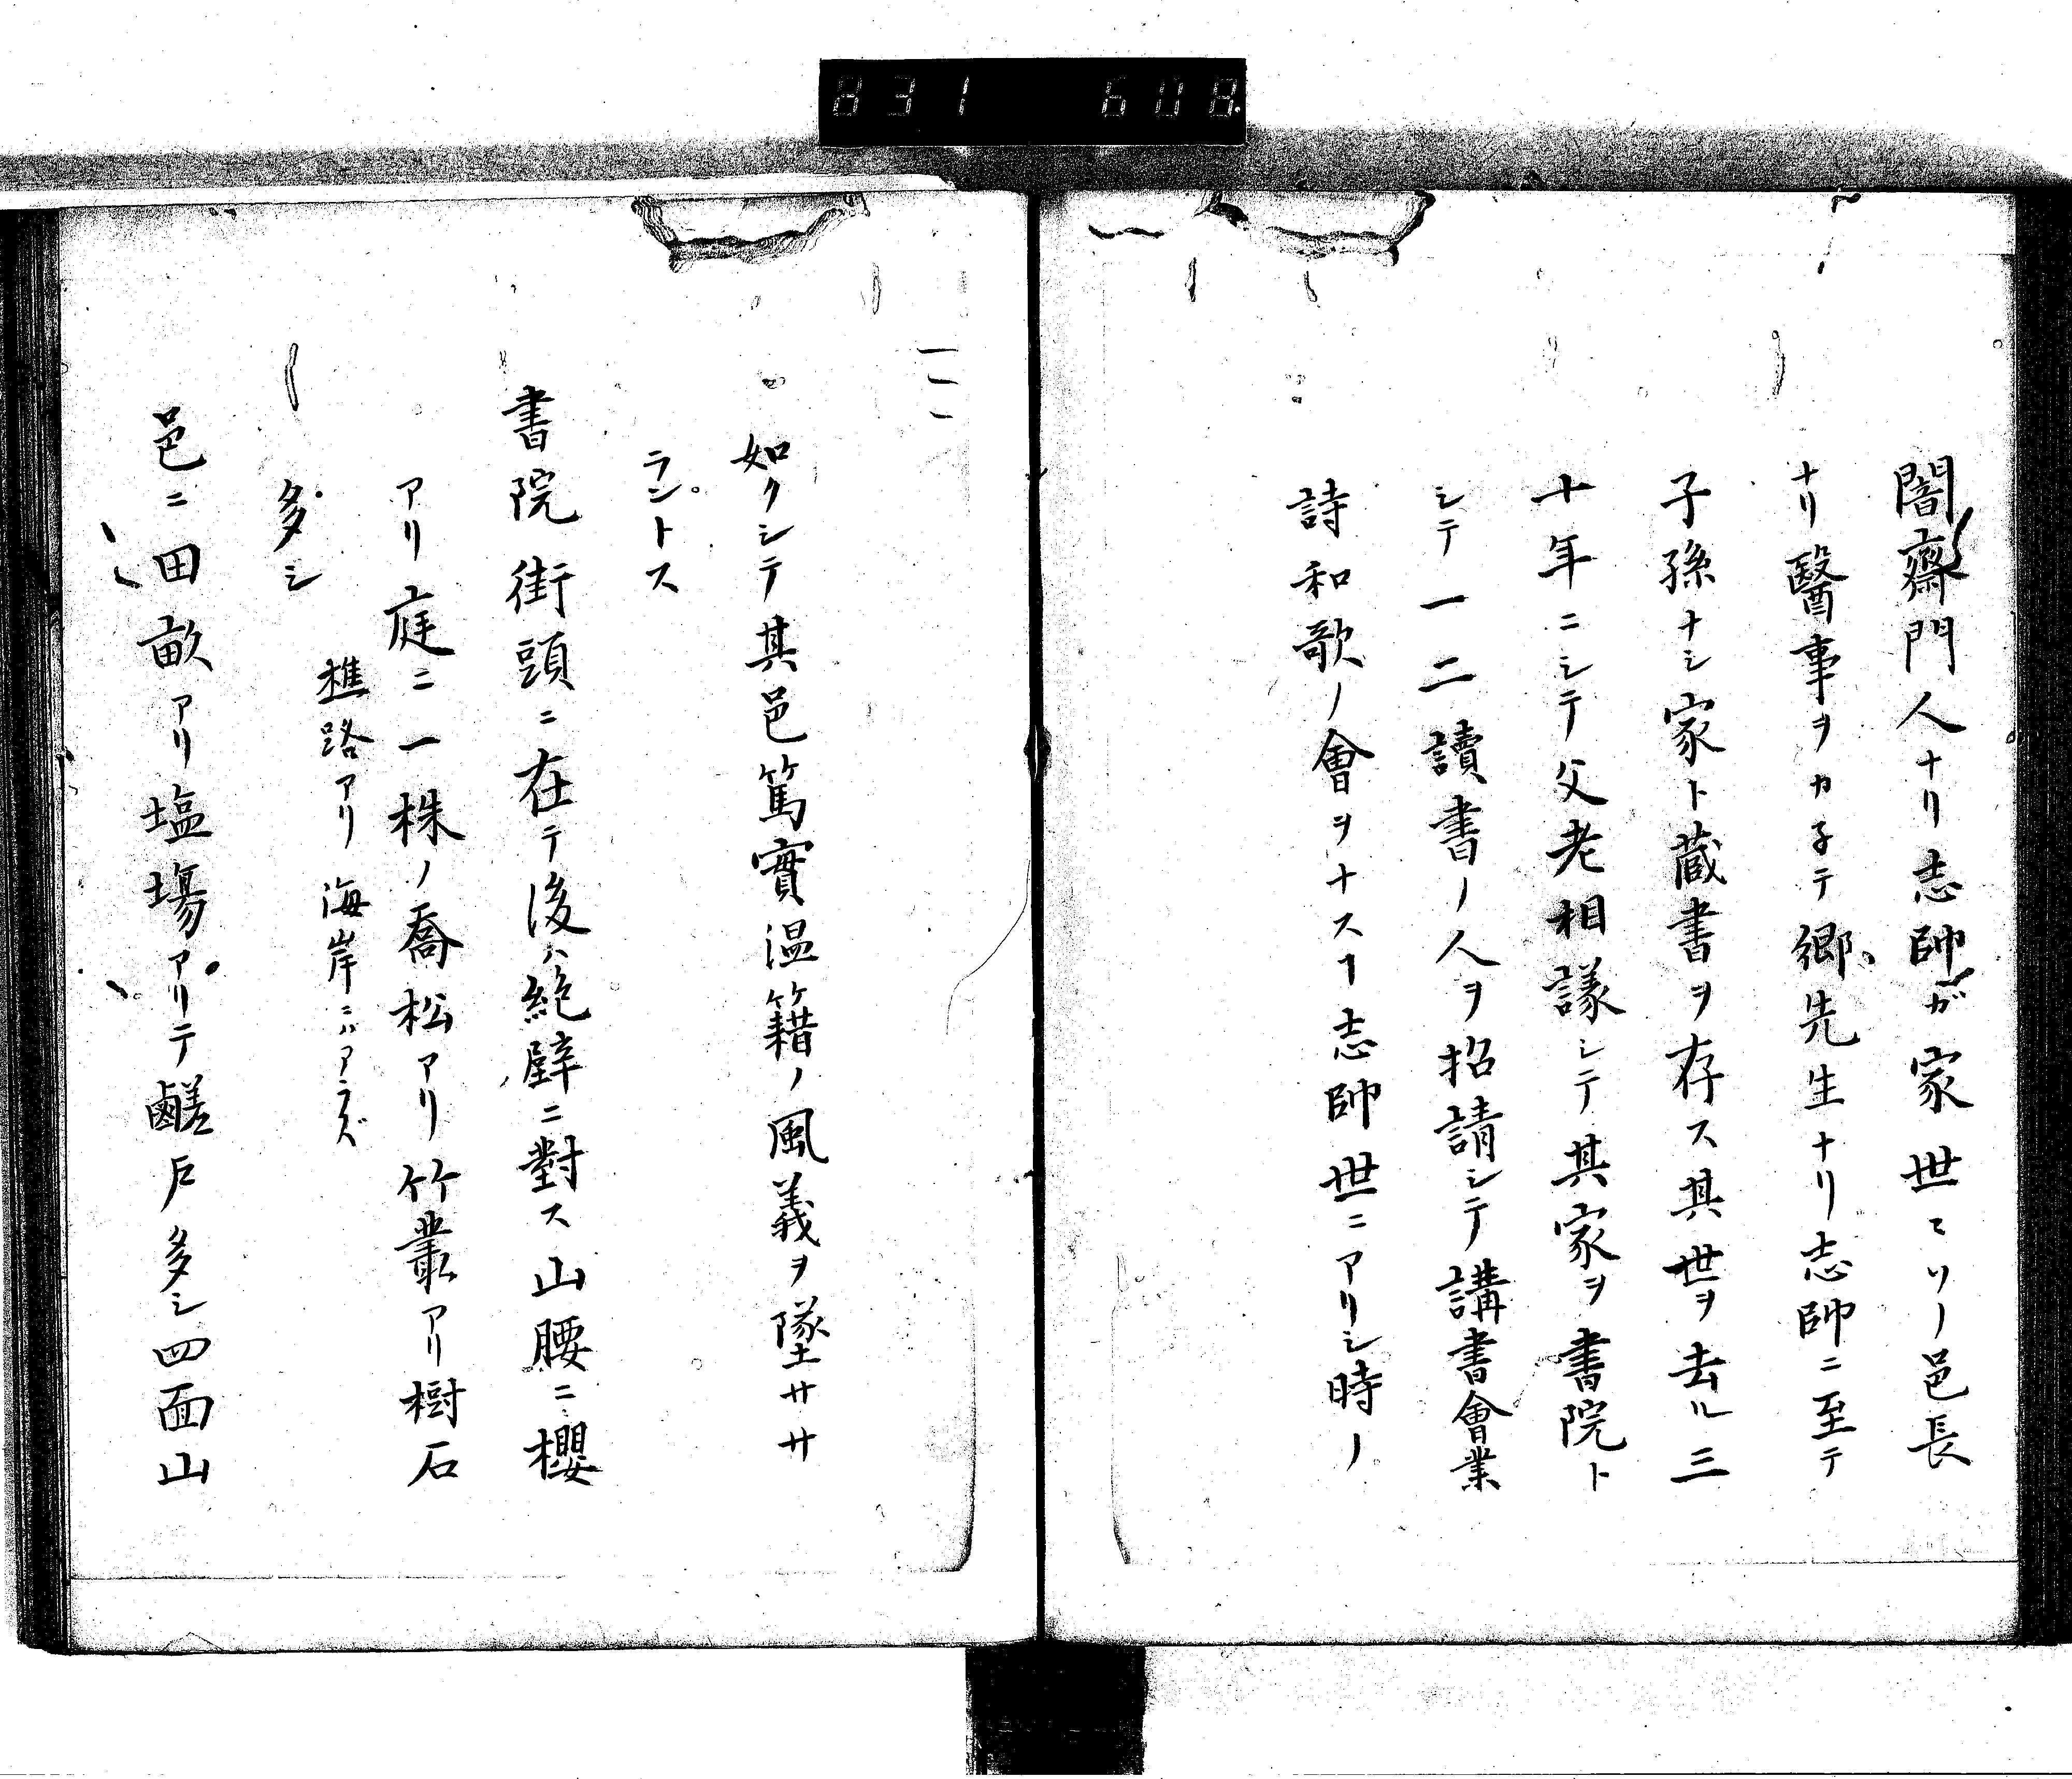 831 608.
闇齋門人ナリ志帥ガ家世〻ソノ邑長
ナリ醫事ヲカ子テ郷先生ナリ志帥ニ至テ
子孫ナシ家ト蔵書ヲ存ス其世ヲ去ル三
十年ニシテ父老相議シテ其家ヲ書院ト
シテ一二讀書ノ人ヲ招請シテ講書會業
詩和歌ノ會ヲナスヿ志帥世ニアリシ時ノ
如クシテ其邑篤實温籍ノ風義ヲ墜サザ
ラントス
書院街頭ニ在テ後ハ絶壁ニ對ス山腰ニ櫻
アリ庭ニ一株ノ喬松アリ竹叢アリ樹石
多シ
樵路アリ海岸ニハアラズ
邑ニ田畝アリ塩塲アリテ鹺戸多シ四面山